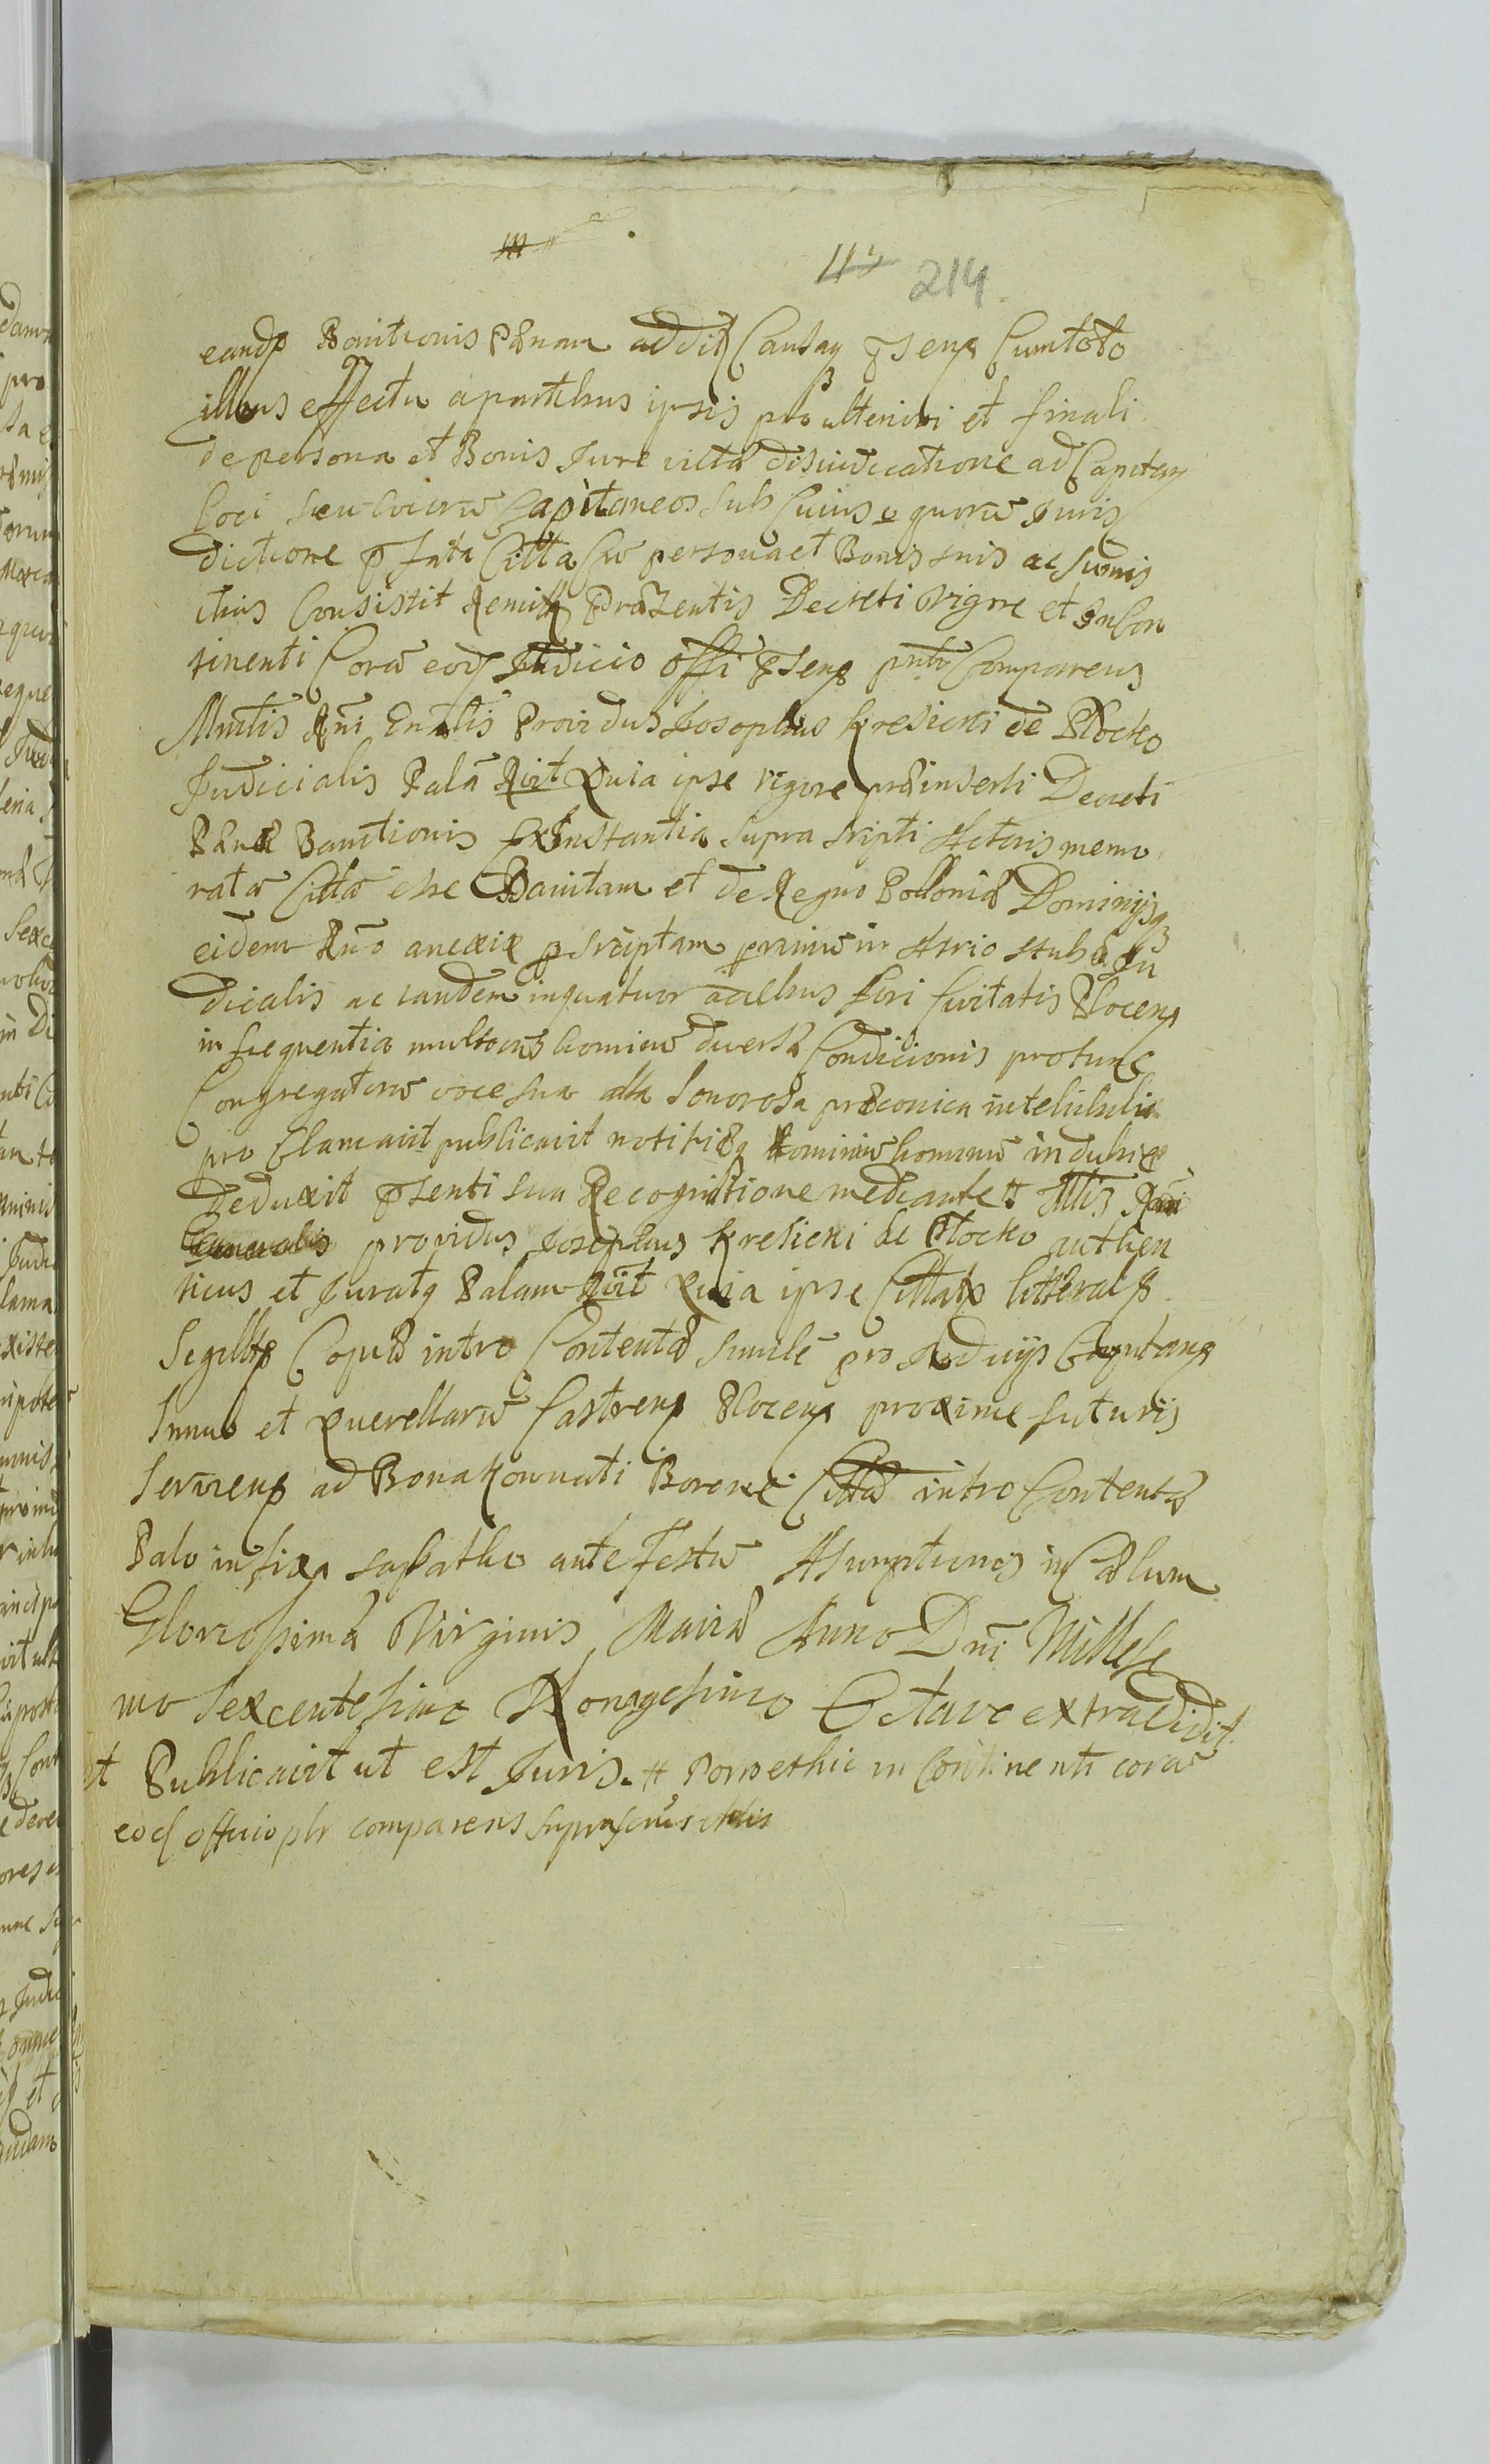 214
eandē Banitionis Pænam addit Causāq pͤsens Cum toto
illius effectu a partibus ipsis pro ulteriori et finali
de persona et Bonis Jure victæ disiudicatione ad Capitan
loci seu locorū Capitaneos sub Cuius et quorū Juris
dictione pͤfata Citta Cū persona et Bonis suis ac Summis
Consistit Remitt Præsentis Decreti vigore et In Con
tinenti Corā eodē Judicio Offi pͤsens pntr Comparens
Mintis Rni Gnalis Providus Josephus Kresicki de Plocko
Judicialis Palā Rvit Quia ipse vigore præinserti Decreti
Pænæ Banitionis Ex Instantia supra scripti Actoris memo
ratā Cittā esse Banitam et de Regno Polloniæ Dominijsq
eidem Rno anexis pͤscriptam primū in Atrio stubæ Ju
dicialis ac tandem in quatuor acibus fori Civitatis Plocens
in frequentia multorū hominū diversæ Condicionis protunc
Congregatorū voce sua alta Sonorosa præconica inteligibili
pro Clamavit publicavit notitiæq hominū in dubiæ
Deduxit pͤsenti sua Recognitione mediante Mttis Rni
Generalis providus Josephus Kresicki de Plocko authen
ticus et Juratq Palam Rvit Quia ipse Cittatē litteralē
Sigillē Copiæ intro Contentæ Simile pro Judicijs Capitane
et Querellarū Castrens Plocens proxime futuris
Serviens ad Bona Cittæ intro Contentæ
Palo in fixa sabatho ante Festū Assumptionis in Cælum
Gloriosissimæ Virginis Mariæ Anno Dni Millesi
mo Sexcentesimo Nonagesimo Octavo extradidit
et Publicavit ut est Juris. Porro et hic in Continenti corā
eodē officio plr comparens